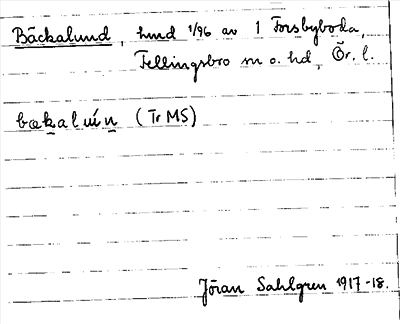 Bäckalund, hmd 1/96 av 1 Forsbyboda,
Fellingsbro sn o. hd, Ör. l.
(Tr MS)
Jöran Sahlgren 1917-18.